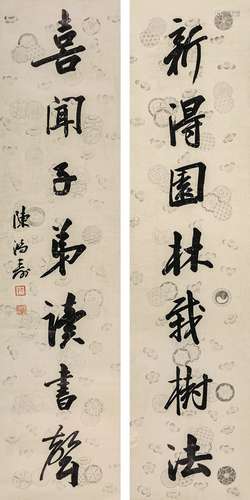 新得園林栽樹法
喜聞子弟讀書聲
陳鴻壽